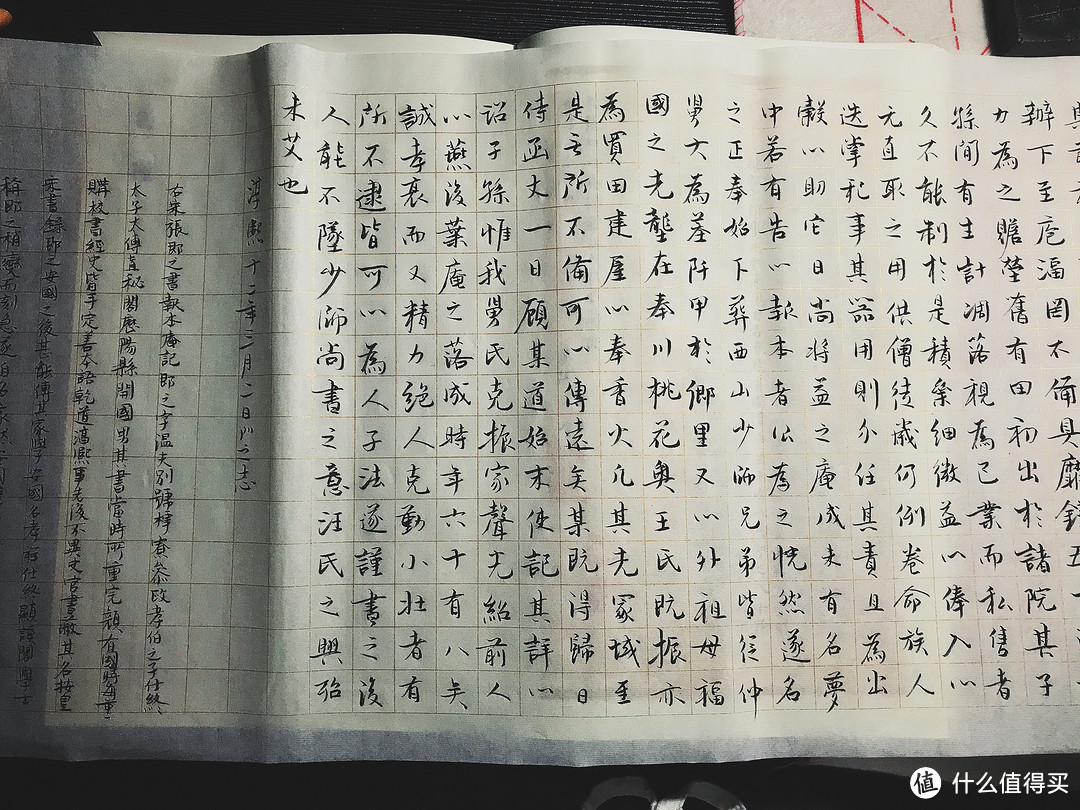 辦下至庖湢罔不備具靡錢五
力為之贍塋舊有田初出於諸院其子
孫間有生計凋落視為已業而私售者
久不能制於是積絫細微益以俸入以
元直取之用供僧徒歲何例卷俞族人
迭掌祀事其器用則分任其責且為出
穀以助它日尚將益之庵成未有名夢
中若有告以報本者公為之恍然遂名
之正奉始下葬西山少師兄弟皆從仲
舅大為墓阡甲於鄉里又以外祖母福
國之先壟在奉川桃花奧王氏既振亦
為買田建屋以奉香火凡其先冢域至
是無所不備可以傳遠矣某既得歸日
侍函丈一日顧某道始末使記其詳以
詔子孫惟我舅氏克振家聲光紹前人
以燕後葉庵之落成時年六十有八矣
誠孝衰而又精力絕人克勤小壯者有
所不逮皆可以為人子法遂謹書之後
人能不墜少師尚書之意汪氏之興殆
未艾也
淳熙十二年三月二日門之志
右宋張即之書報本庵記即之字溫夫別號樗寮參政孝伯之子仕終
太子太傅直秘閣歷陽縣開國男其書當時所重完顏有國時每重
購校書經史皆手定善本語乾道淳熙事先後不異史官書畫蔽其名按皇
宋書錄即之安國之後甚能傳其家學安國名孝祥仕終顯謨閣學士
稱即之稍變而刻急遂自名家
值 什么值得买